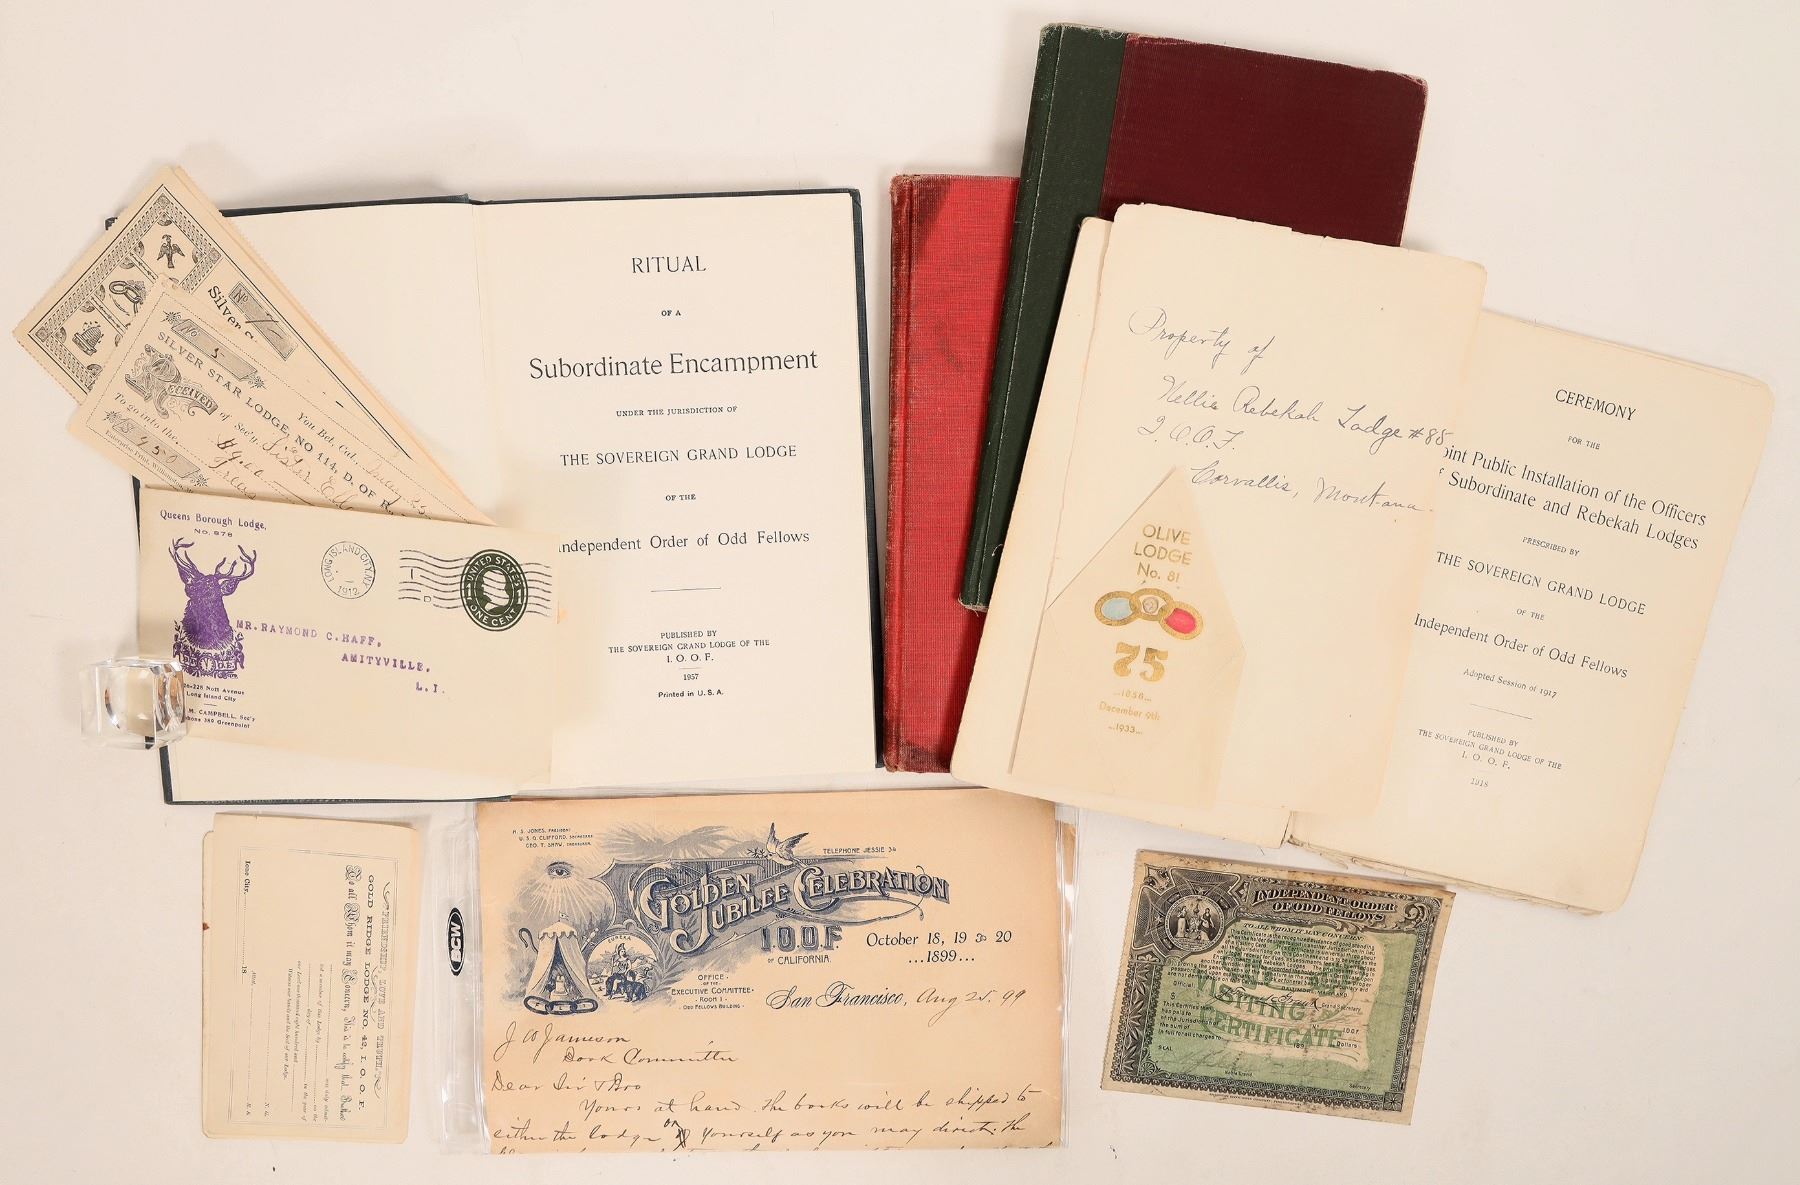 RITUAL
OF A
Subordinate Encampment
UNDER THE JURISDICTION OF
THE SOVEREIGN GRAND LODGE
OF THE
Independent Order of Odd Fellows
PUBLISHED BY
THE SOVEREIGN GRAND LODGE OF THE
I. O. O. F.
1957
Printed in U. S. A.
No
Silver S
No 5
SILVER STAR LODGE, NO. 114, D. OF R.
You Bet, Cal.,
RECEIVED
of Sec'y. Sister
To go into the
$ 9 50
Enterprise Print, Williamston
Queens Borough Lodge,
No. 878
LONG ISLAND CITY, N.Y.
1912
UNITED STATES
ONE CENT
MR. RAYMOND C. HAFF,
AMITYVILLE,
L.I.
Nott Avenue
Long Island City
M. CAMPBELL, Sec'y
389 Greenpoint
Property of
Nellie Rebekah Lodge #85
I.O.O.F.
Corvallis, Montana.
OLIVE
LODGE
No. 81
75
...1858...
December 9th
...1933...
CEREMONY
FOR THE
oint Public Installation of the Officers
f Subordinate and Rebekah Lodges
PRESCRIBED BY
THE SOVEREIGN GRAND LODGE
OF THE
Independent Order of Odd Fellows
Adopted Session of 1917
PUBLISHED BY
THE SOVEREIGN GRAND LODGE OF THE
I. O. O. F.
1918
FRIENDSHIP, LOVE AND TRUTH.
GOLD RIDGE LODGE NO. 42, I. O. O. F.
To all Whom it may Concern, This is to certify that Brother
Ione City,
18
Attest,
N. G.
R. S.
BCW
H. S. JONES, PRESIDENT
U. S. G. CLIFFORD, SECRETARY
GEO. T. SHAW, TREASURER
TELEPHONE JESSIE 34
GOLDEN
JUBILEE CELEBRATION
I.O.O.F.
OF CALIFORNIA.
October 18, 19 & 20
...1899...
EUREKA
OFFICE
OF THE
EXECUTIVE COMMITTEE
ROOM 1
ODD FELLOWS BUILDING
San Francisco, Aug 25. 99
J W Jameson
Book Committee
Dear Sir & Bro
Yours at hand. The books will be shipped to
either the lodge or yourself as you may direct. The
INDEPENDENT ORDER
OF ODD FELLOWS
TO ALL WHOM IT MAY CONCERN:
VISITING
CERTIFICATE
Grand Secretary
I.O.O.F.
Dollars
SEAL
Noble Grand
Secretary